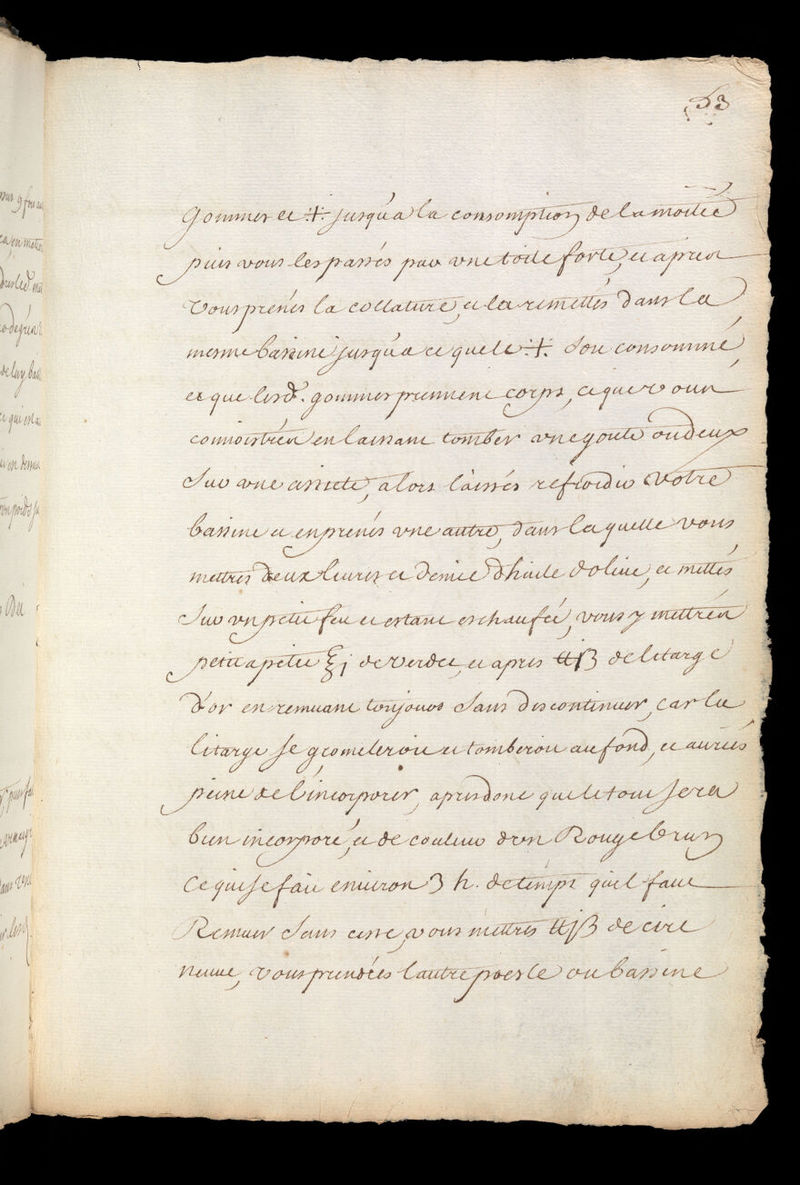 53
gommes et .⁒. jusqu'a la consomption de la moitié
puis vous les passés par une toile forte, et apres
vous prenés la collature, et la remettés dans la
mesme bassine jusqu'a ce que le .⁒. soit consommé,
et que lesd. gommes prennent corps, ce que vous
connoistrés en laissant tomber une goute ou deux
sur une assiete, alors laissés refroidir votre
bassine et en prenés une autre, dans laquelle vous
mettres deux livres et demie d'huile d'olive, et mettés
sur un petit feu et estant eschaufée, vous y mettrés
petit a petit ℥j de verdet, et apres ℔jß de litarge
d'or en remuant toujours sans discontinuer, car la
litarge se gromeleroit et tomberoit au fond, et auriés
peine de l'incorporer, apres donc que le tout sera
bien incorporé, et de couleur d'un Rouge brun
ce qui se fait environ 3 h. de temps qu'il faut
Remuer sans cesse, vous mettres ℔jß de cire
neuve, vous prendrés l'autre poesle ou bassine